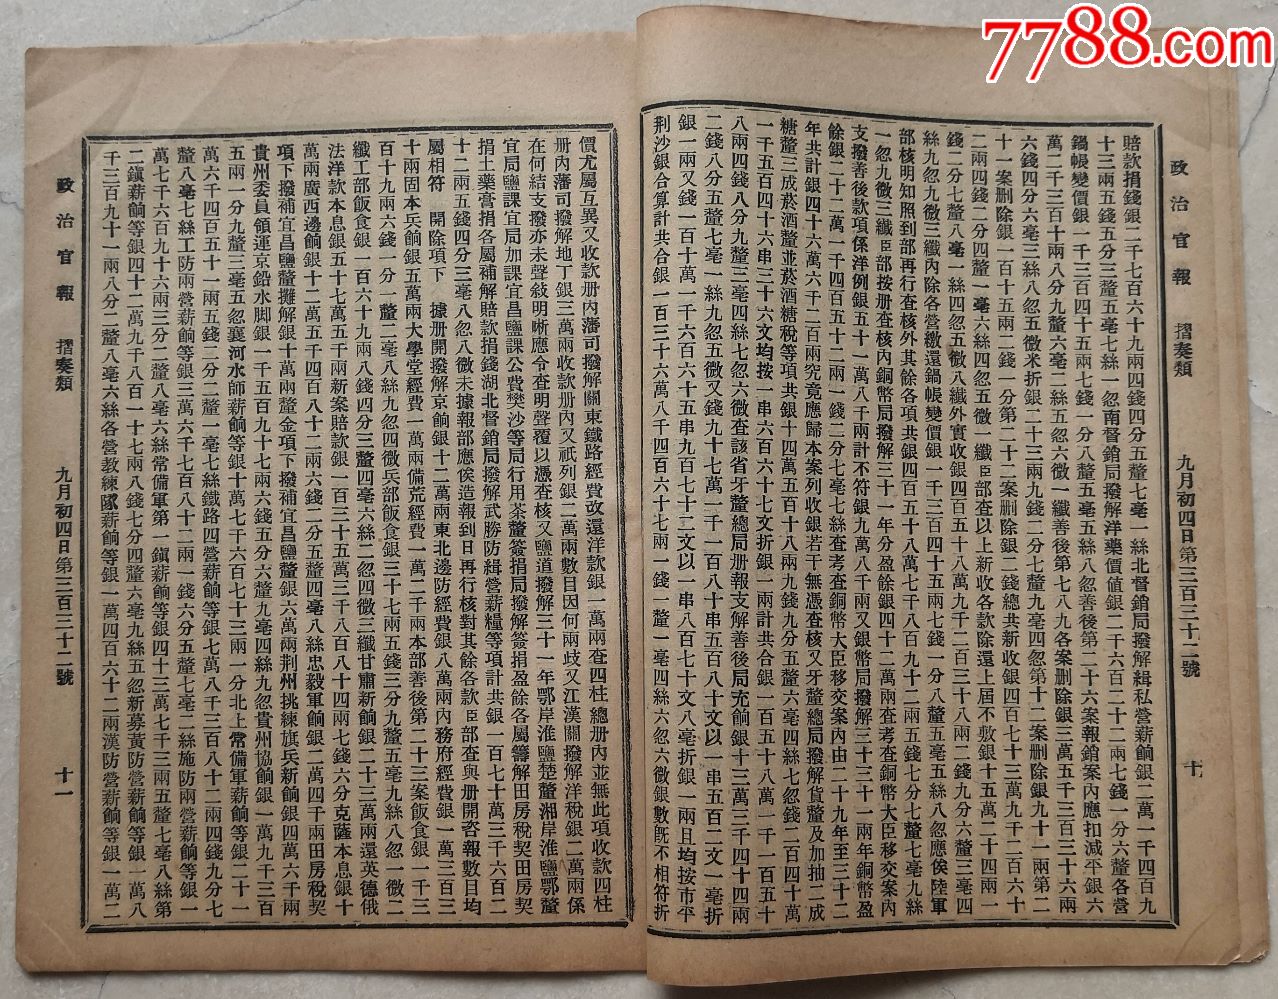 7788.com
政治官報 摺奏類 九月初四日第三百三十二號 十
賠款捐錢銀二千七百六十九兩四錢四分五釐七毫一絲北督銷局撥解緝私營薪餉銀二萬一千四百九
十三兩五錢五分三釐五毫七絲一忽南督銷局撥解洋藥價値銀二千六百二十二兩七錢一分六釐各營
鍋帳變價銀一千三百四十五兩七錢一分八釐五毫五絲八忽善後第二十六案報銷案內應扣減平銀六
萬二千三百十兩八分九釐六毫二絲五忽六微一纖善後第七八九各案刪除銀三萬五千三百三十六兩
六錢四分六毫三絲八忽五微米折銀二十三兩九錢二分七釐九毫四忽第十二案刪除銀九十一兩第二
十一案刪除銀一百十五兩二錢一分第二十二案刪除銀二錢總共新收銀四百七十一萬九千二百六十
二兩四錢二分四釐一毫六絲四忽五微一纖臣部查以上新收各款除還上屆不敷銀十五萬二十四兩一
錢二分七釐八毫一絲四忽五微八纖外實收銀四百五十六萬九千二百三十八兩二錢九分六釐三毫四
絲九忽九微三纖內除各營繳還鍋帳變價銀一千三百四十五兩七錢一分八釐五毫五絲八忽應俟陸軍
部核明知照到部再行查核外其餘各項共銀四百五十八萬七千八百九十二兩五錢七分七釐七毫九絲
一忽九微三纖臣部按册查核內銅幣局撥解三十一年分盈餘銀四十八千兩又銀幣局撥解三十一兩年銅幣盈
支撥善後款項係洋例銀五十一萬八千兩計不符銀九萬二千一百三十二兩查考查銅幣大臣移交案內
餘銀二十二萬一千四百二十二兩一錢二分七毫七絲查考查銅幣大臣移交案內由二十九年至三十二
年共計銀四十六萬六千二百兩究竟應歸本案列收銀若干無憑查核又牙釐總局撥解貨釐及加抽二成
糖釐三成菸酒釐並菸酒糖稅等項共銀十四萬五百十八兩九錢九分五釐六毫四絲七忽錢二百四十萬
一千五百六十串三十六文均按一串六百六十七文折銀一兩計共合銀一百五十八萬一千一百五十
八兩四錢八分九釐三毫四絲七忽六微查該省牙釐總局册報支解善後局充餉銀十三萬三千四十四兩
二錢八分五釐七毫一絲九忽五微又錢九十七萬一千一百八十串五百八十文以一串五百二文一毫折
銀一兩又錢一百十萬一千六百六十五串九百七十二文以一串八百七十文八毫折銀一兩且均按市平
荆沙銀合算計共合銀一百三十六萬八千四百六十七兩一錢一釐一毫四絲六忽六微銀數旣不相符折
價尤屬互異又收款册內藩司撥解關東鐵路經費改還洋款銀一萬兩查四柱總册內並無此項收款四柱
册內藩司撥解地丁銀三萬兩收款册內又祇列銀二萬兩數目因何兩歧又江漢關撥解洋稅銀二萬兩係
在何結支撥亦未聲敍明晰應令查明聲覆以憑查核又鹽道撥解三十一年鄂岸淮鹽楚釐湘岸淮鹽鄂釐
宜局鹽課宜局加課宜昌鹽課公費樊沙等局行用茶釐簽捐局撥解簽捐盈餘各屬籌解田房稅契田房契
捐土藥膏捐各屬補解賠款捐錢湖北督銷局撥解武勝防緝營薪糧等項計共銀一百七十萬三千六百二
十二兩五錢四分三毫八忽八微未據報部應俟造報到日再行核對其餘各款臣部查與册開咨報數目均
屬相符 開除項下 據册開撥解京餉銀二十二萬兩東北邊防經費銀八萬兩內務府經費銀一萬三百三
十兩固本兵餉銀五萬兩大學堂經費一萬兩備荒經費一萬二千兩本部善後第二十三案飯食銀一千三
百十九兩六錢一分一釐二毫八絲九忽四微兵部飯食銀三十七兩五錢三分九釐五毫九絲八忽一微二
纖工部飯食銀一百六十九兩八錢四分三釐四毫六絲二忽四微三纖甘肅新餉銀二十三萬兩還英德俄
法洋款本息銀五十七萬五千兩新案賠款銀一百三十五萬三千八百八十四兩七錢六分克薩本息銀十
萬兩廣西邊餉銀十二萬五千四百八十二兩六錢二分五釐四毫八絲忠毅軍餉銀二萬四千兩田房稅契
項下撥補宜昌鹽釐攤解銀十萬兩釐金項下撥補宜昌鹽釐銀六萬兩荆州挑練旗兵新餉銀四萬六千兩
貴州委員領運京鉛水脚銀一千五百九十七兩六錢五分六釐九毫四絲九忽貴州協餉銀一萬九千三百
五兩一分九釐三毫五忽襄河水師薪餉等銀十萬七千六百七十三兩一分北上常備軍薪餉等銀二十一
萬六千四百五十一兩五錢二分二釐一毫七絲鐵路四營薪餉等銀七萬八千三百八十二兩四錢九分七
釐八毫七絲工防兩營薪餉等銀三萬六千七百八十二兩一錢六分五釐七毫二絲施防兩營薪餉等銀一
萬七千六百九十六兩三分二釐八毫六絲常備軍第一鎭薪餉等銀四十三萬七千三兩五釐七毫八絲第
二鎭薪餉等銀四十二萬九千八百一十七兩八錢七分四釐六毫九絲五忽新募黃防營薪餉等銀一萬八
千三百九十一兩八分二釐八毫六絲各營教練隊薪餉等銀一萬四百六十二兩漢防營薪餉等銀一萬二
政治官報 摺奏類 九月初四日第三百三十二號 十一